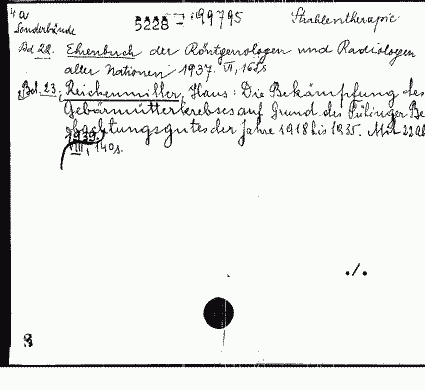 4a 5228 - 199795 Strahlentherapie
Sonderbände
Bd 22. Ehrenbuch der Röntgenologen und Radiologen
aller Nationen 1937. VI, 162 S
Bd. 23. Reichenmiller, Hans: Die Bekämpfung des
Gebärmutterkrebses auf Grund des Tübinger Be
obachtungsgutes der Jahre 1918 bis 1935. Mit 22 Ab
1939.
VIII, 140 S.
./.
8